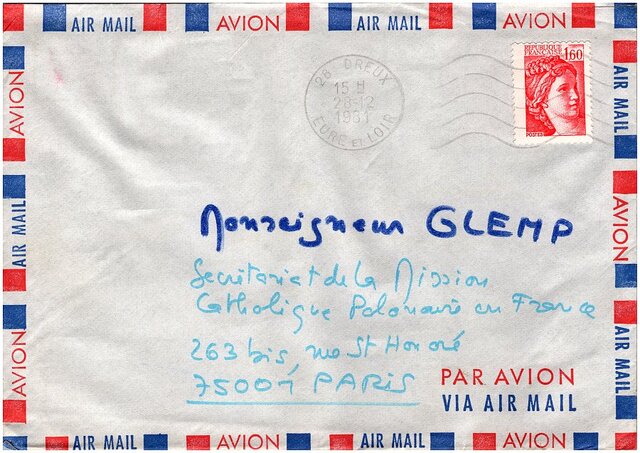 AIR MAIL AVION AIR MAIL AVION
28 DREUX
15 H
28-12
1981
EURE ET LOIR
REPUBLIQUE FRANÇAISE
1,60
POSTES
AVION
AIR MAIL
AVION
AIR MAIL
AVION
AIR MAIL
Monseigneur GLEMP
Secrétariat de la Mission
Catholique Polonaise en France
263 bis, rue St Honoré
75001 PARIS
PAR AVION
VIA AIR MAIL
AIR MAIL AVION AIR MAIL AVION